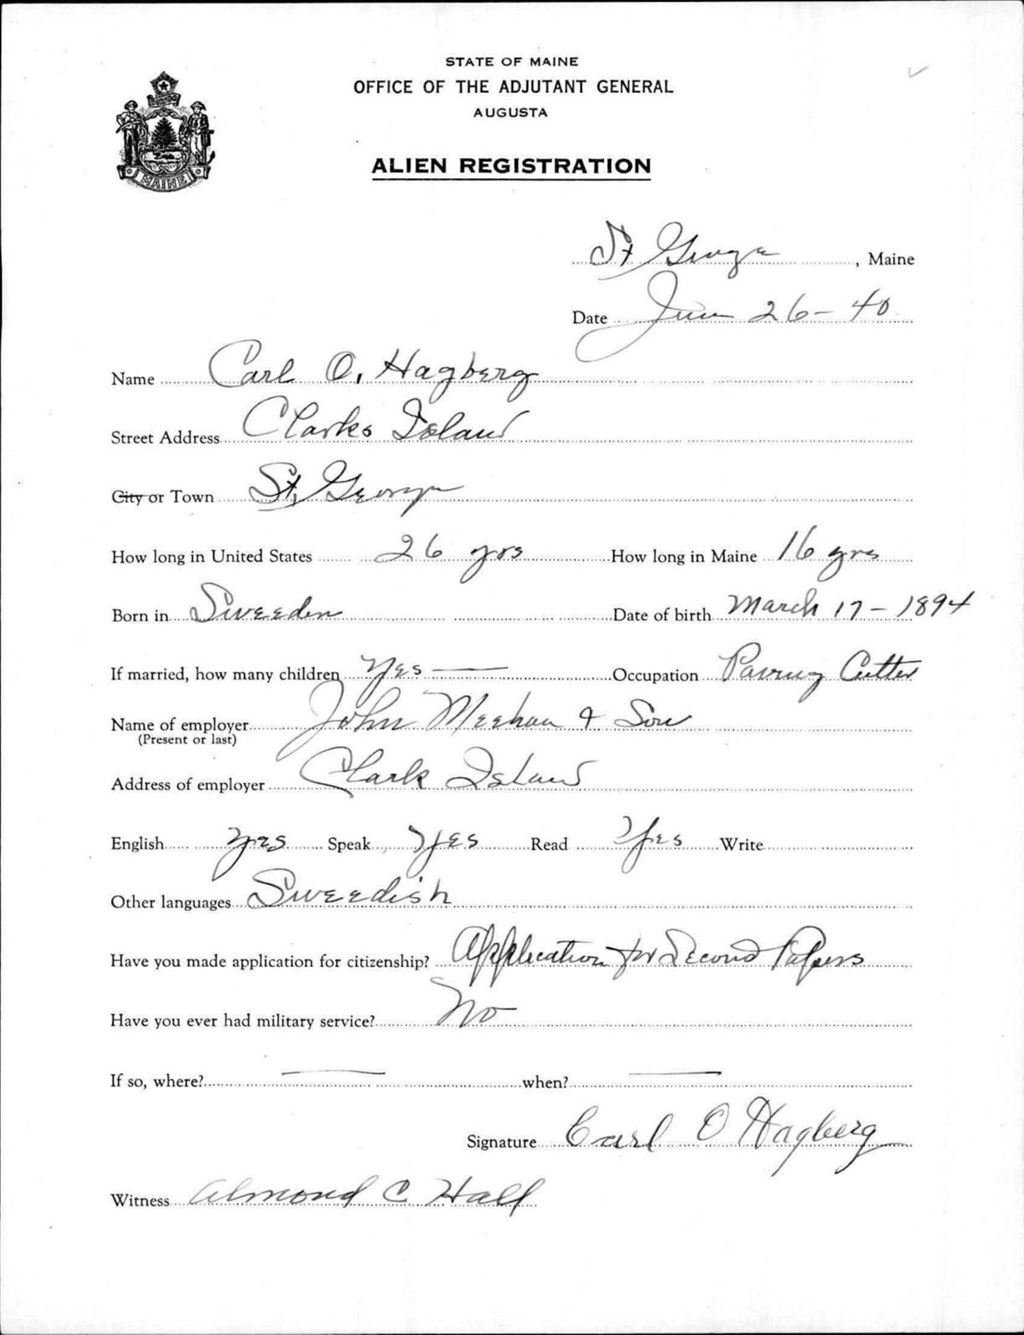 STATE OF MAINE
OFFICE OF THE ADJUTANT GENERAL
AUGUSTA
ALIEN REGISTRATION
MAINE
St George, Maine
Date June 26-40
Name Carl O. Hagberg
Street Address Clarks Island
City or Town St. George
How long in United States 26 yrs How long in Maine 16 yrs
Born in Sweeden Date of birth March 17-1894
If married, how many children Yes — Occupation Paving Cutter
Name of employer John Meehan & Son
(Present or last)
Address of employer Clark Island
English yes Speak Yes Read Yes Write
Other languages Sweedish
Have you made application for citizenship? Application for Second Papers
Have you ever had military service? No
If so, where? — when? —
Signature Carl O Hagberg
Witness Almond C Hall